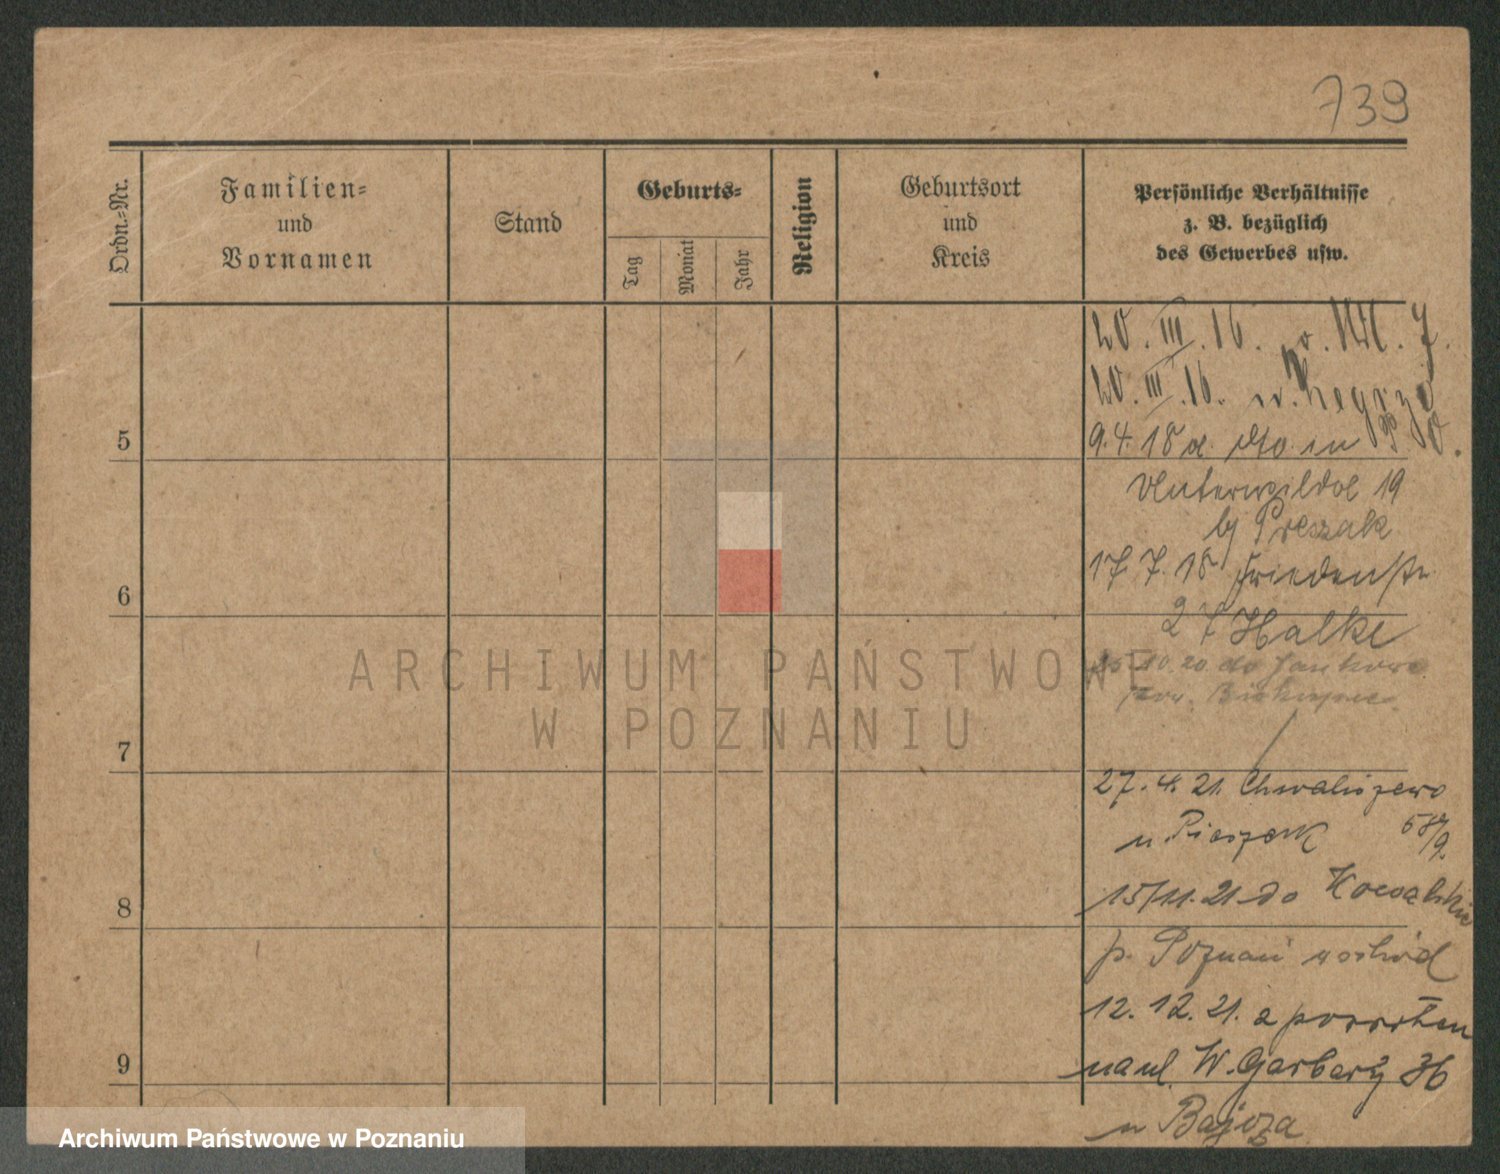 739
Ordn.=Nr.
Familien=
und
Vornamen
Stand
Geburts=
Tag
Monat
Jahr
Religion
Geburtsort
und
Kreis
Persönliche Verhältnisse
z. B. bezüglich
des Gewerbes usw.
20. III. 16.
20. III. 16.
5
9.4.18 in
Unterwilda 19
17.7.18 Friedenstr
6
27 Halke
10.20 do Jankowo
pow.
7
27.4.21. Chwaliszewo
u 58/9.
15/11.21 do Kowalskie
8
p. Poznań wschód
12.12.21. z powrotem
na ul. W. Garbary 36
9
u Bajoza
ARCHIWUM PAŃSTWOWE
W POZNANIU
Archiwum Państwowe w Poznaniu